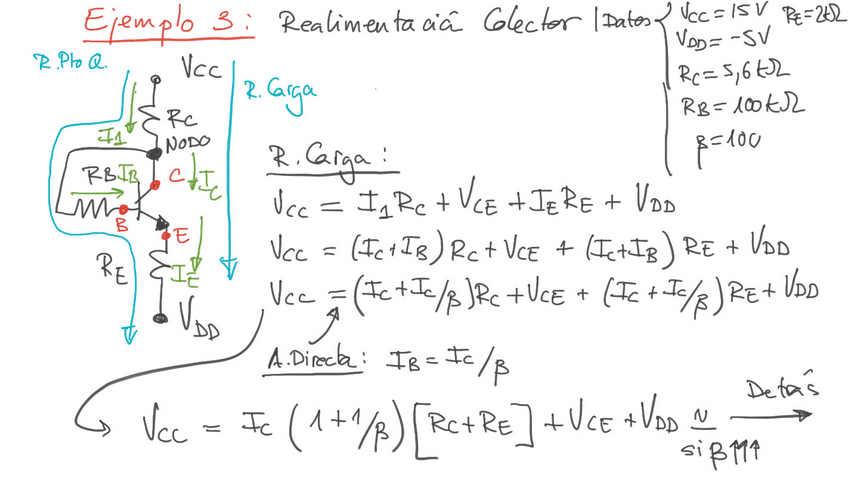 Ejemplo 3: Realimentación Colector | Datos
VCC = 15V RE = 2kΩ
VDD = -5V
RC = 5,6 kΩ
RB = 100 kΩ
β = 100
R. Pto Q.
VCC
R. Carga
RC
I1
NODO
RB IB
C
IC
B
E
RE
IE
VDD
R. Carga:
VCC = I1 RC + VCE + IE RE + VDD
VCC = (IC + IB) RC + VCE + (IC + IB) RE + VDD
VCC = (IC + IC/β) RC + VCE + (IC + IC/β) RE + VDD
A. Directa: IB = IC/β
VCC = IC (1 + 1/β) [RC + RE] + VCE + VDD ≃
si β↑↑↑
Detrás